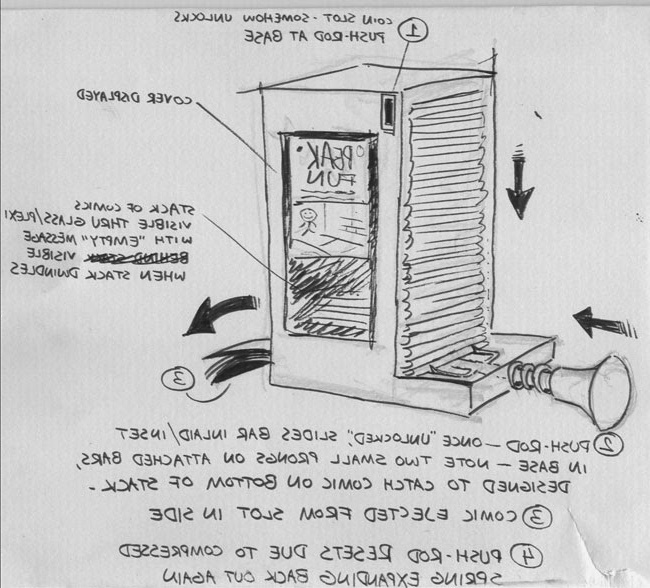 ① COIN SLOT - SOMEHOW UNLOCKS
PUSH-ROD AT BASE
COVER DISPLAYED
PEAK
FUN
STACK OF COMICS
VISIBLE THRU GLASS/PLEXI
WITH "EMPTY" MESSAGE
BEHIND VISIBLE
WHEN STACK DWINDLES
③
② PUSH-ROD — ONCE "UNLOCKED", SLIDES BAR INLAID/INSET
IN BASE - NOTE TWO SMALL PRONGS ON ATTACHED BARS,
DESIGNED TO CATCH COMIC ON BOTTOM OF STACK.
③ COMIC EJECTED FROM SLOT IN SIDE
④ PUSH-ROD RESETS DUE TO COMPRESSED
SPRING EXPANDING BACK OUT AGAIN